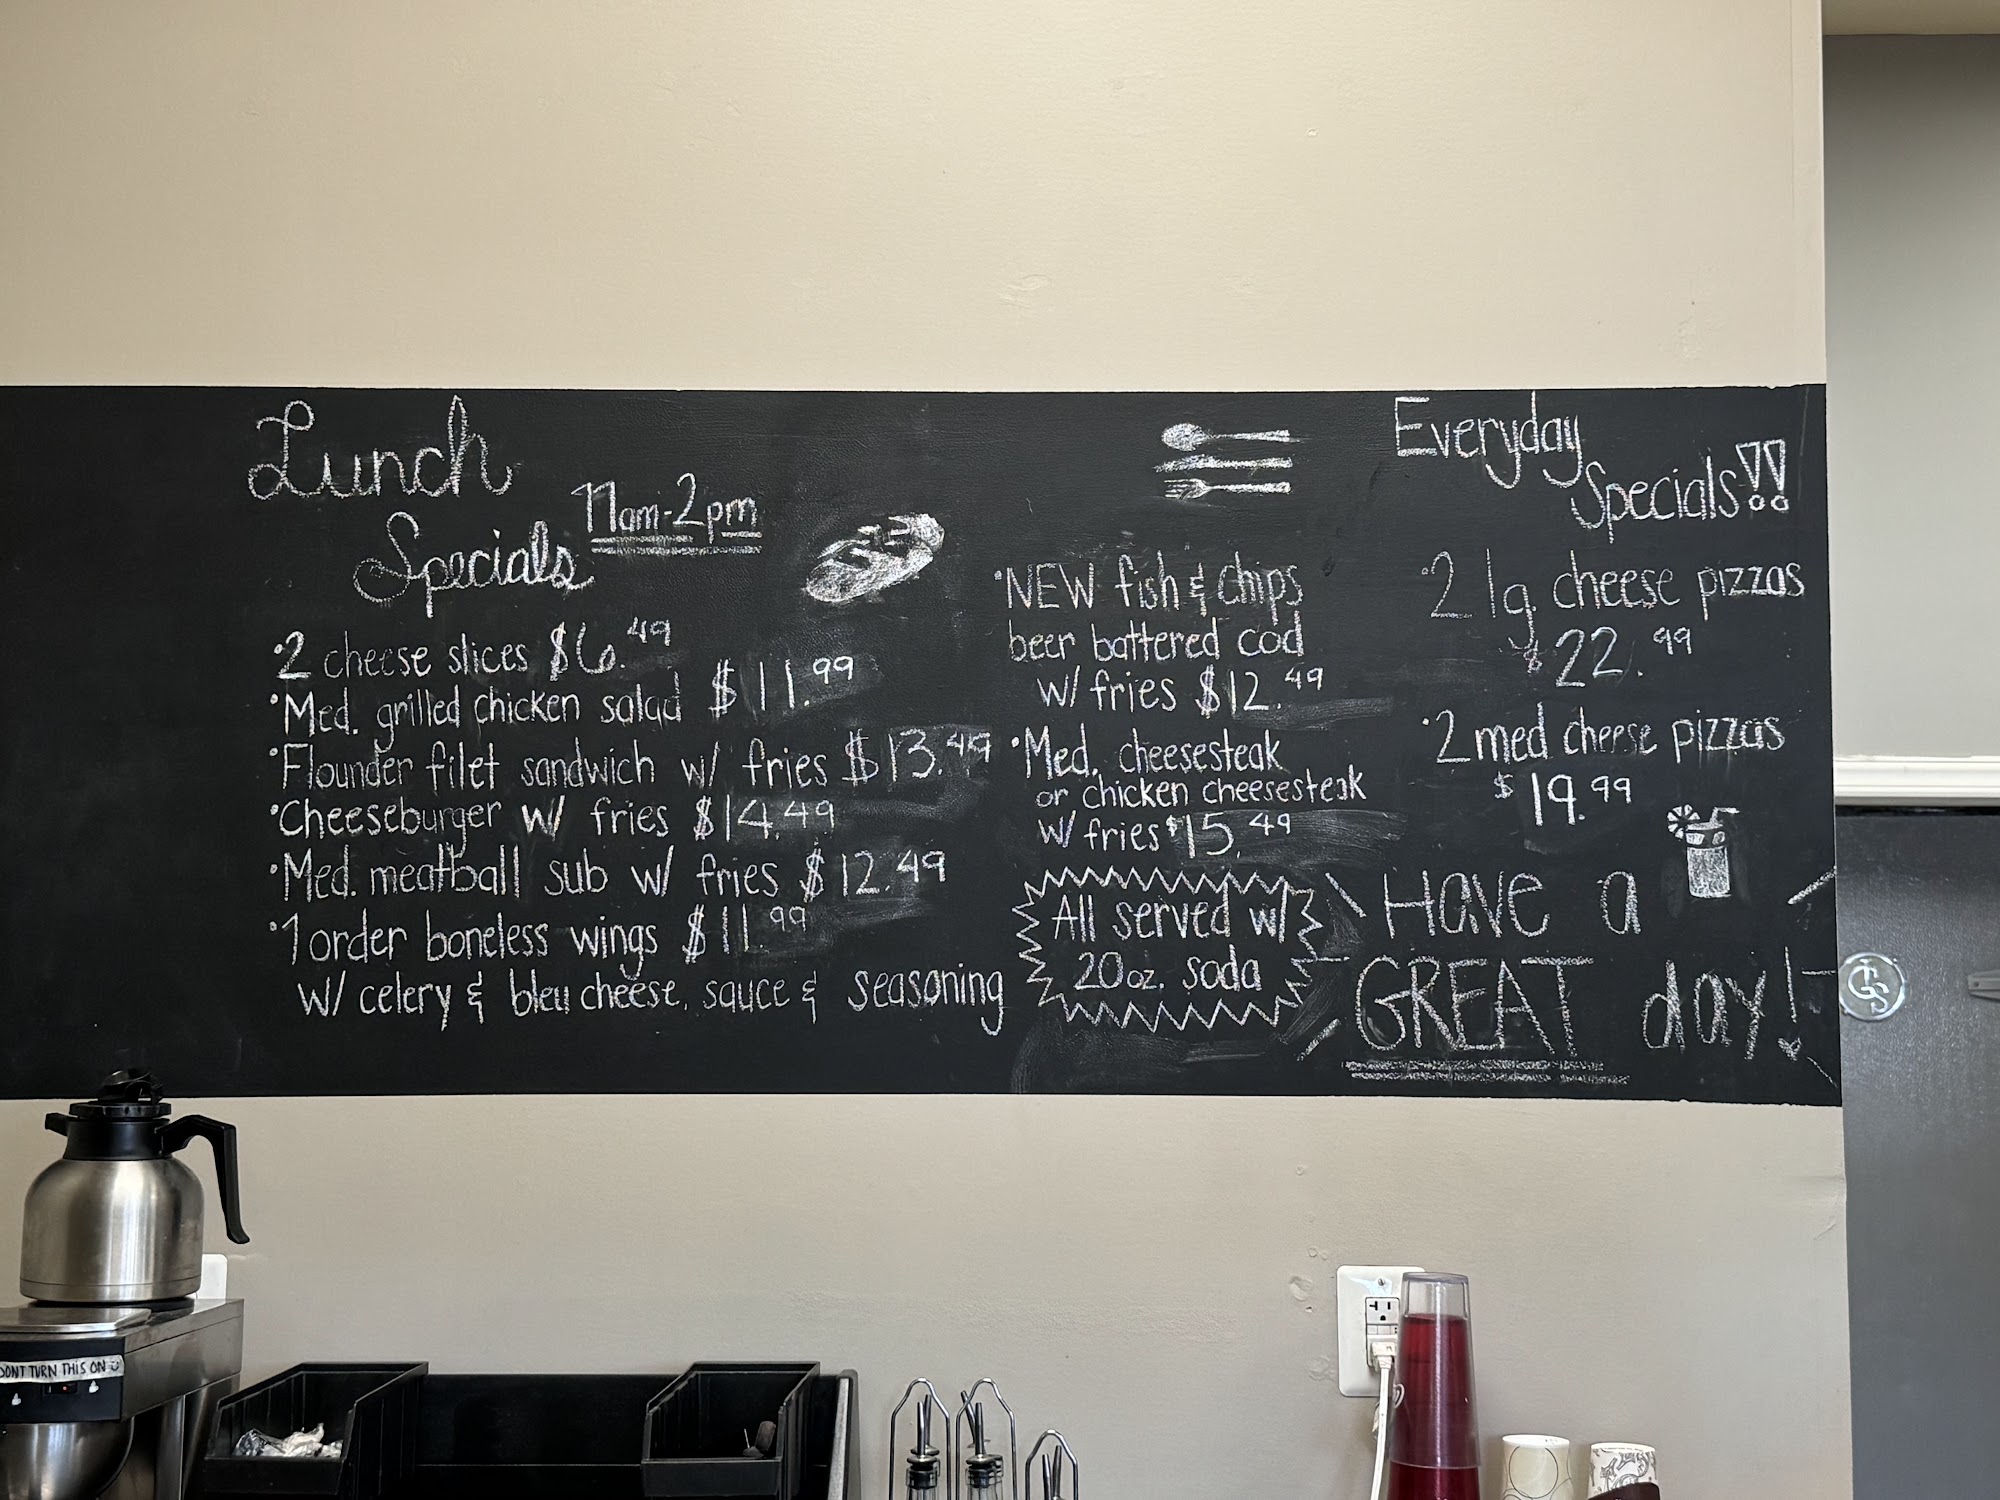 Lunch
Specials 11am-2pm
•2 cheese slices $6.49
•Med. grilled chicken salad $11.99
•Flounder filet sandwich w/ fries $13.49
•Cheeseburger w/ fries $14.49
•Med. meatball sub w/ fries $12.49
•1 order boneless wings $11.99
w/ celery & bleu cheese, sauce & seasoning
•NEW fish & chips
beer battered cod
w/ fries $12.49
•Med. cheesesteak
or chicken cheesesteak
w/ fries $15.49
All served w/
20oz. soda
Everyday
Specials!!
•2 lg. cheese pizzas
$22.99
•2 med cheese pizzas
$19.99
Have a
GREAT day!
DONT TURN THIS ON